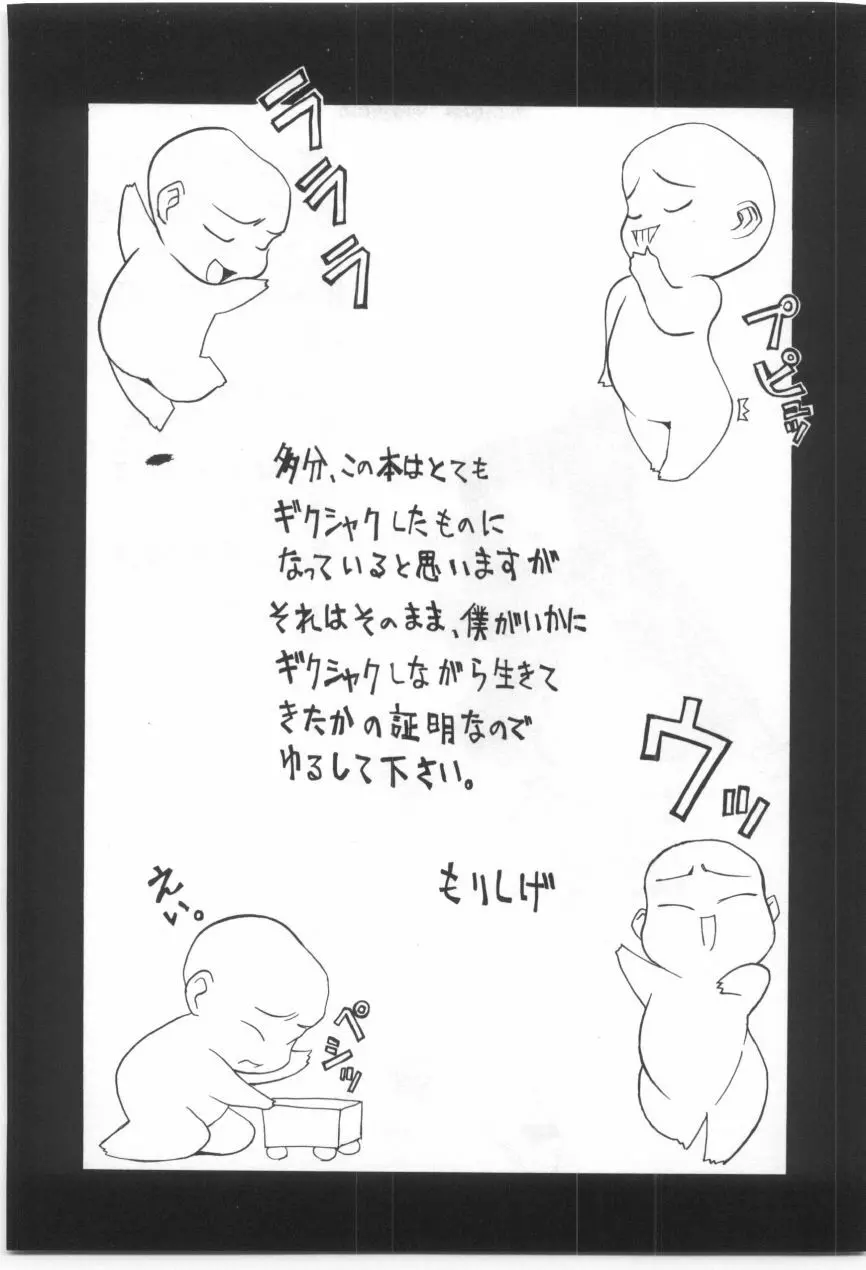 ララララララ
ペペペッ
多分、この本はとても
ギクシャクしたものに
なっていると思いますが
それはそのまま、僕がいかに
ギクシャクしながら生きて
きたかの証明なので
ゆるして下さい。
ウッ
もりしげ
えい。
ペシッ